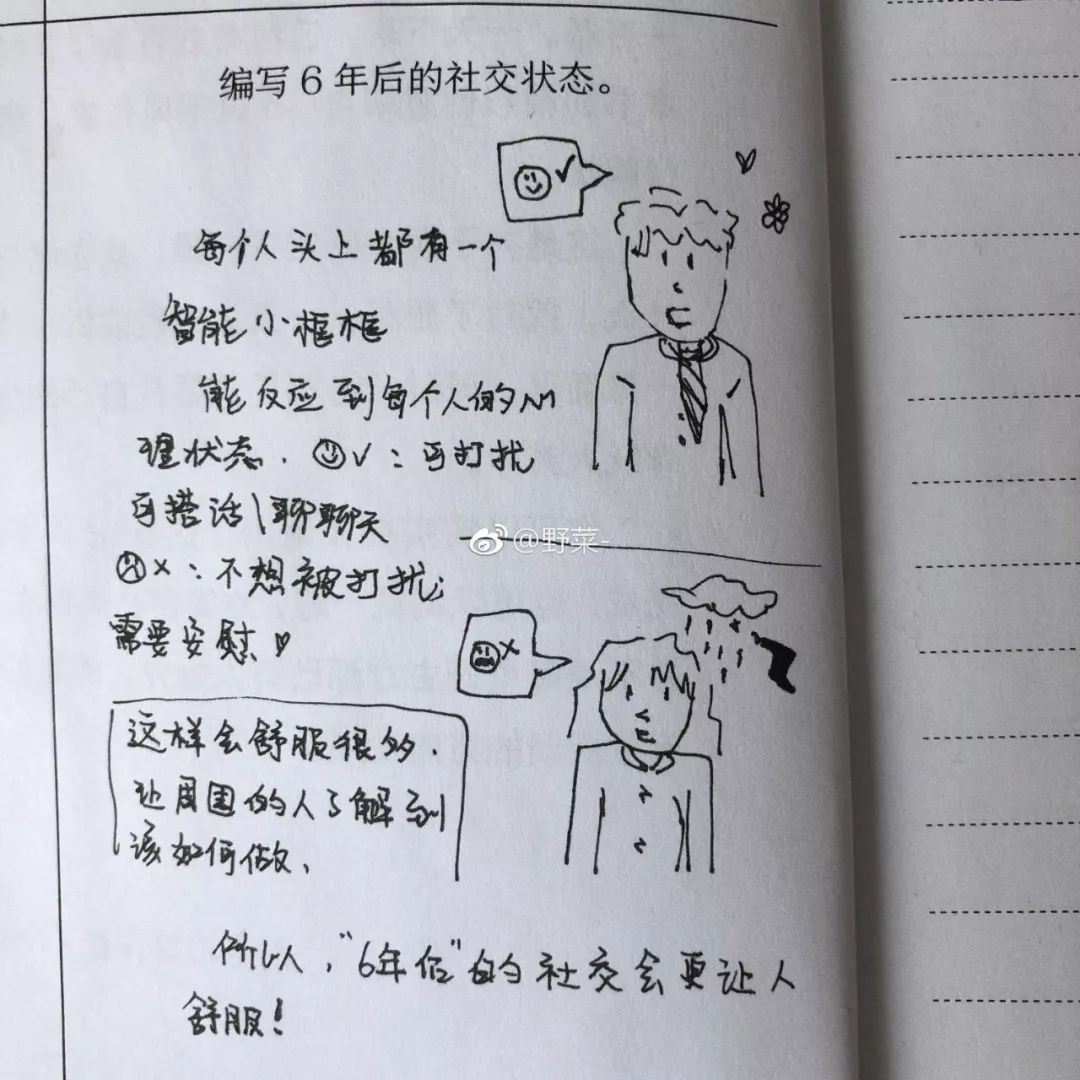 编写6年后的社交状态。
每个人头上都有一个
智能小框框
能反应到每个人的心
理状态.☺✓:可打扰
可搭话\聊聊天
☹×:不想被打扰;
需要安慰♡
@野菜-
这样会舒服很多.
让周围的人了解到
该如何做.
所以,"6年后"的社交会更让人
舒服!